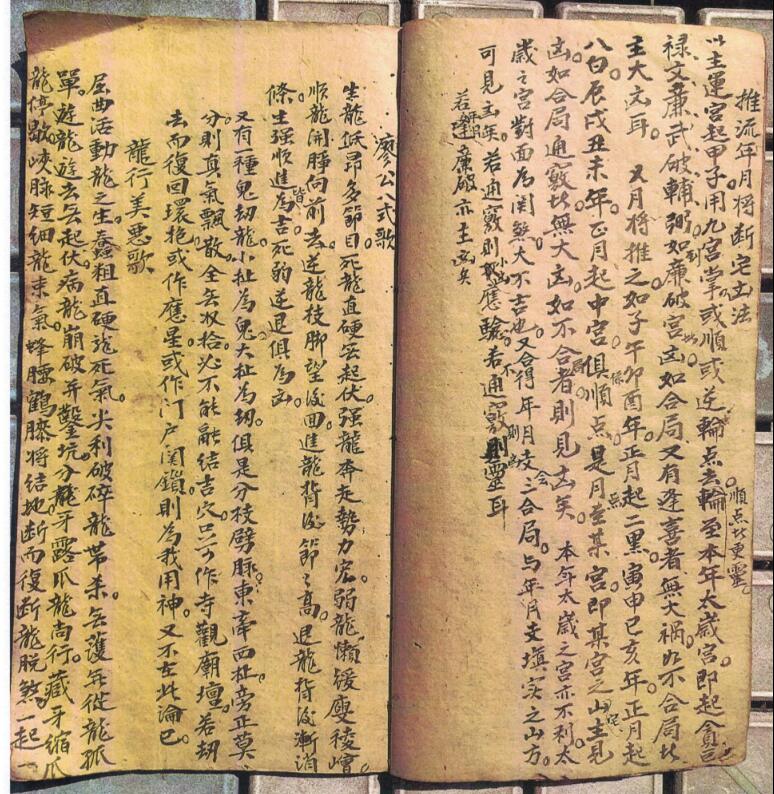 推流年月將断宅凶法
以主運宮起甲子用九宮掌或順或逆輪点去輪至本年太歲宮即起貪巨
順点此更靈
禄文廉武破輔弼如廉破到此宮凶如合局又有逢喜者無大禍如不合局此
主大凶耳 又月將推之如子午卯酉年正月起二黑寅申巳亥年正月起
八白辰戌丑未年正月起中宮俱順点是月至某宮即某宮之山主見
凶如合局通竅此無大凶如不合者則見凶矣 本年太歲之宮亦不利太
歲之宮對面為関煞大不吉也又合得年月支三合局与年月支填实之山方
可見凶年若通竅則應驗若不通竅則靈耳
若逢廉破亦主凶矣
廖公八式歌
生龍低昂多節目死龍直硬無起伏强龍奔走勢力宏弱龍懶緩瘦稜嶒
順龍開睜向前去逆龍枝脚望後回進龍背後節々高退龍背後漸消
條生强順進皆為吉死弱逆退俱為凶
又有一種鬼劫龍小扯為鬼大扯為劫俱是分枝劈脉東牽西扯旁正莫
分則真氣飄散全無收拾必不能融結吉穴只可作寺觀廟壇若劫
去而復回環抱或作應星或作门户関鎖則為我用神又不在此論已
龍行美惡歌
屈曲活動龍之生蠢粗直硬龍死氣尖利破碎龍帶杀無護無從龍孤
單遊龍遊去無起伏病龍崩破并鑿坑分龍牙露爪龍尚行藏牙縮爪
龍停歇峽脉短細龍束氣蜂腰鶴膝將结地断而復断龍脱煞一起一